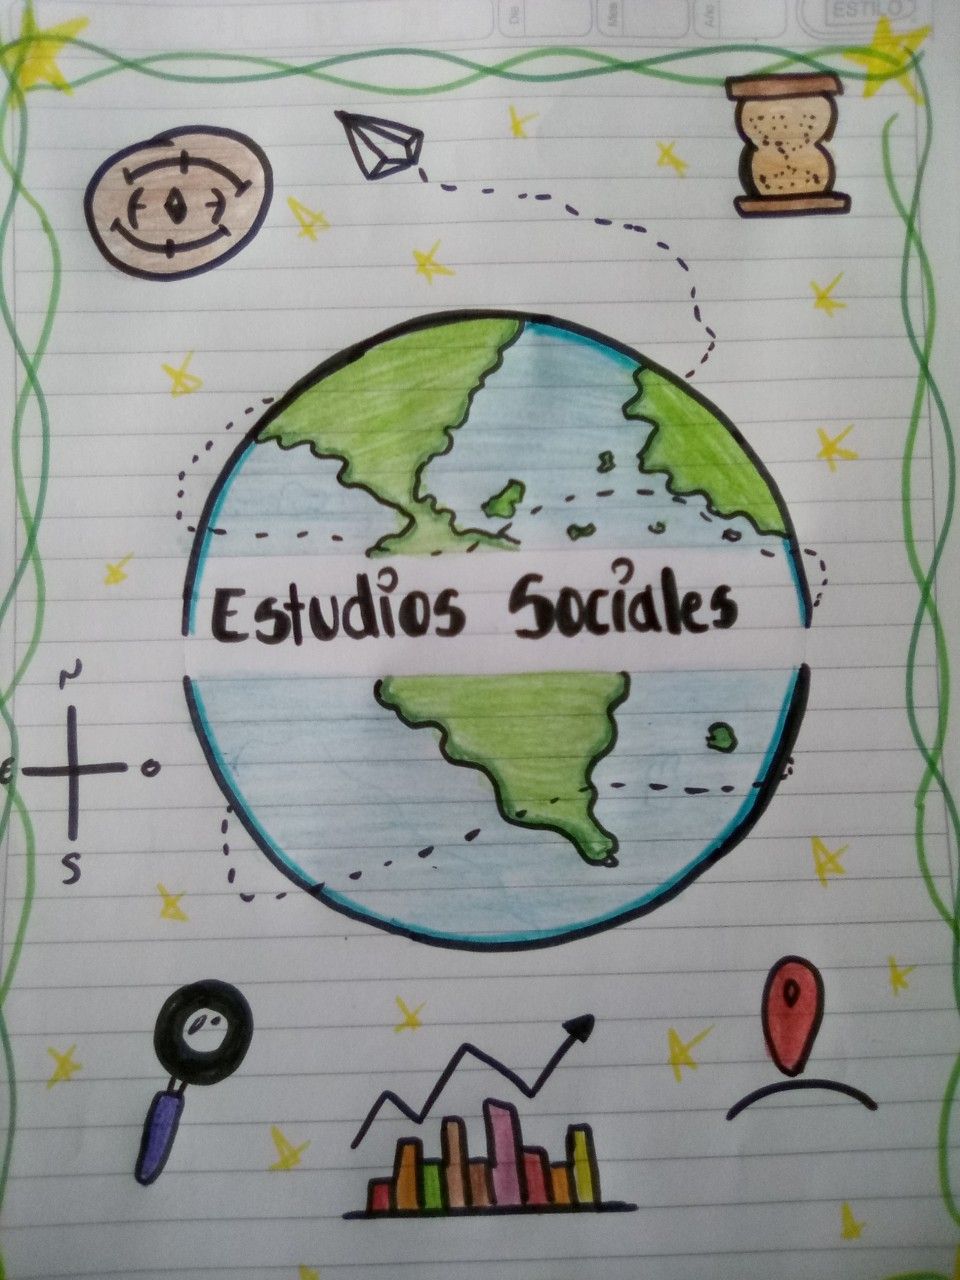 Dia Mes Año ESTILO
Estudios Sociales
N
e o
S